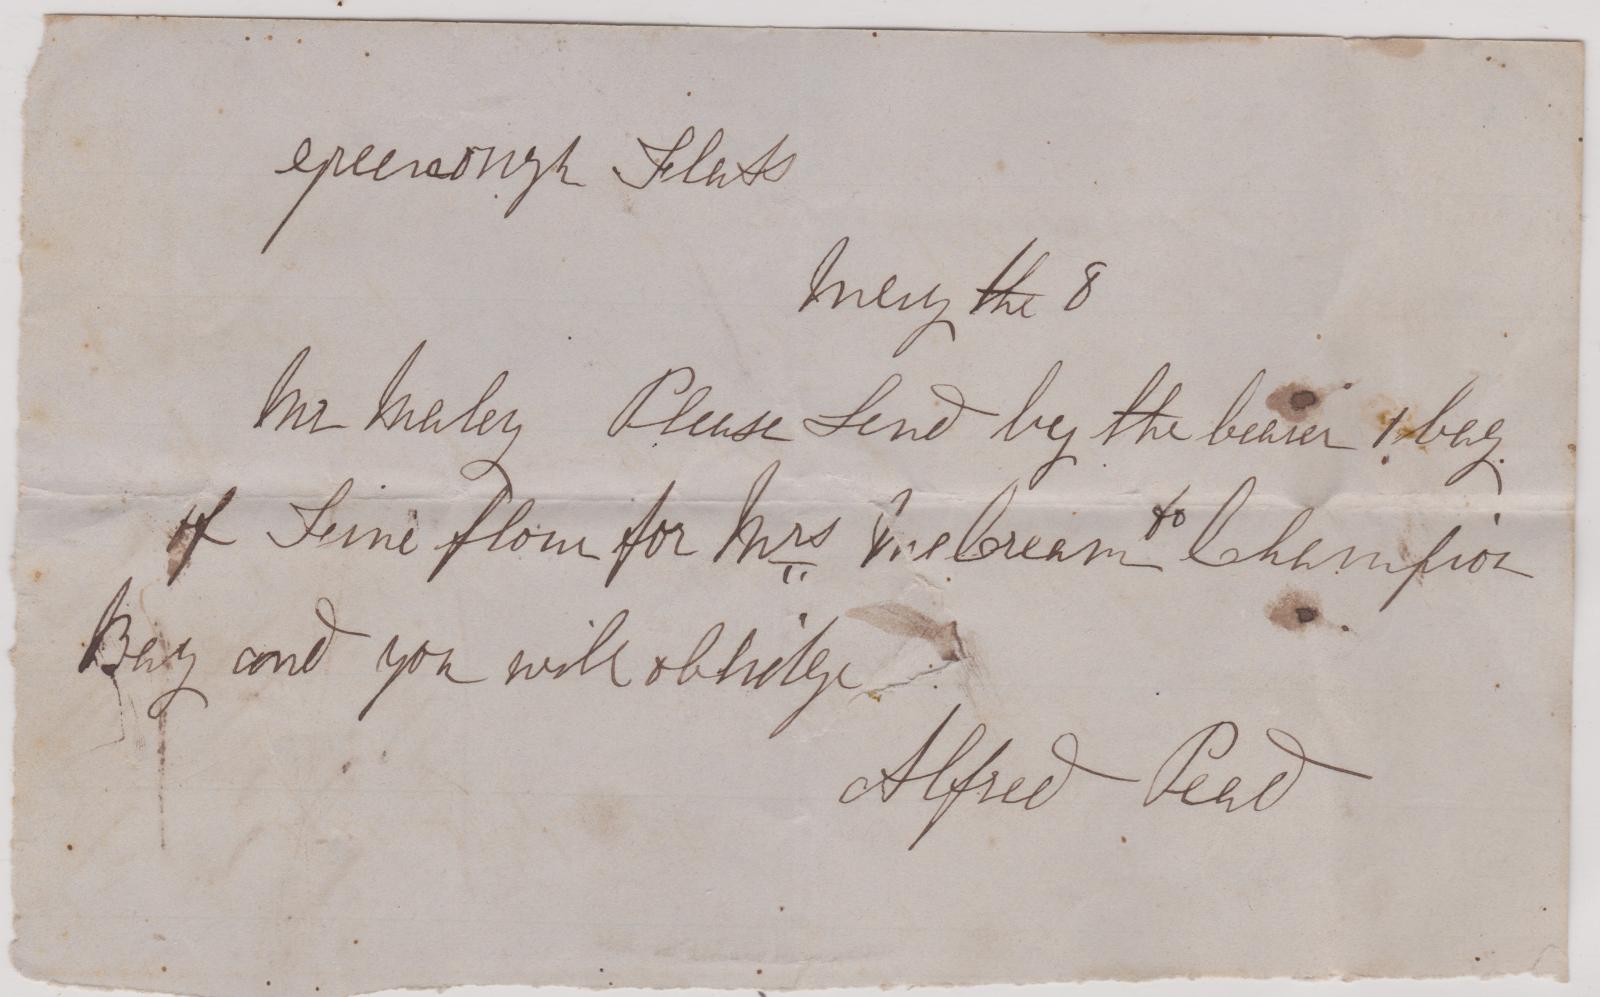 greenough Flats
May the 8
Mr Maley Please Send by the bearer 1 bag
of Fine flour for Mrs McCream to Champion
Bay and you will oblidge
Alfred Pead